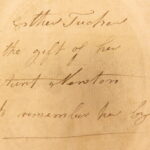 Esther Tucker
the gift of her
Aunt Newton
to remember her by